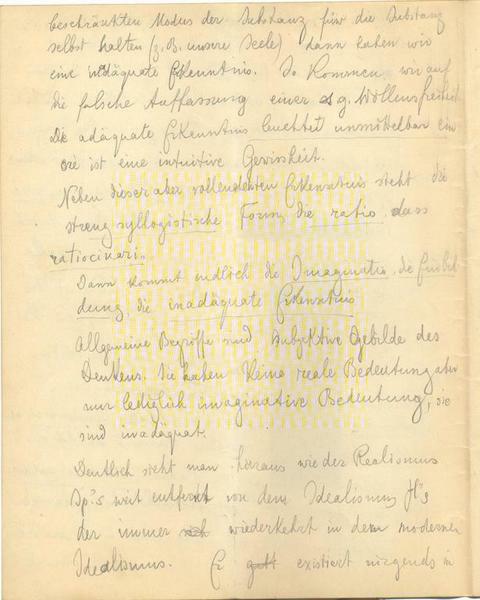 beschränkten Modus der Substanz für die Substanz
selbst halten (z. B. unsere Seele) dann haben wir
eine inadäquate Erkenntnis. So kommen wir auf
die falsche Auffassung einer s. g. Willensfreiheit
Die adäquate Erkenntnis leuchtet unmittelbar ein
sie ist eine intuitive Gewissheit.
Neben dieser aber vollendetsten Erkenntnis steht die
streng syllogistische Form, die ratio, dass
ratiocinari.
Dann kommt endlich die Imaginatio, die Einbil-
dung, die inadäquate Erkenntnis
Allgemeine Begriffe sind subjektive Gebilde des
Denkens. Sie haben keine reale Bedeutung aber
nur lediglich imaginative Bedeutung, sie
sind inadäquat.
Deutlich sieht man hieraus wie der Realismus
Sp's weit entfernt von dem Idealismus H's
der immer wiederkehrt in dem modernen
Idealismus. Er existiert nirgends in